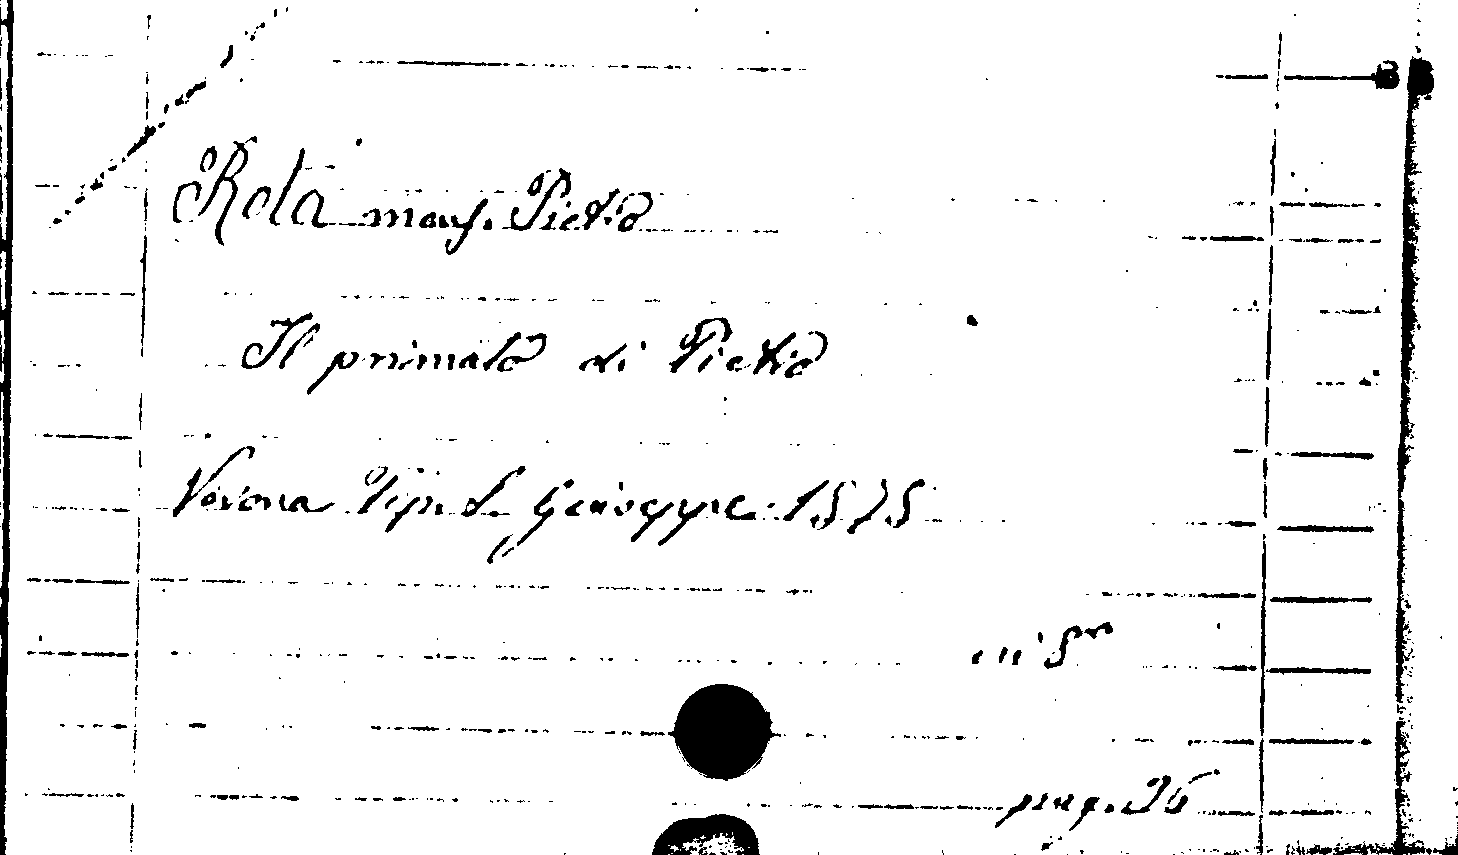 Rota mons. Pietro
Il primato di Pietro
Verona Tip. S. Giuseppe 1875
in 8º
pag. 26